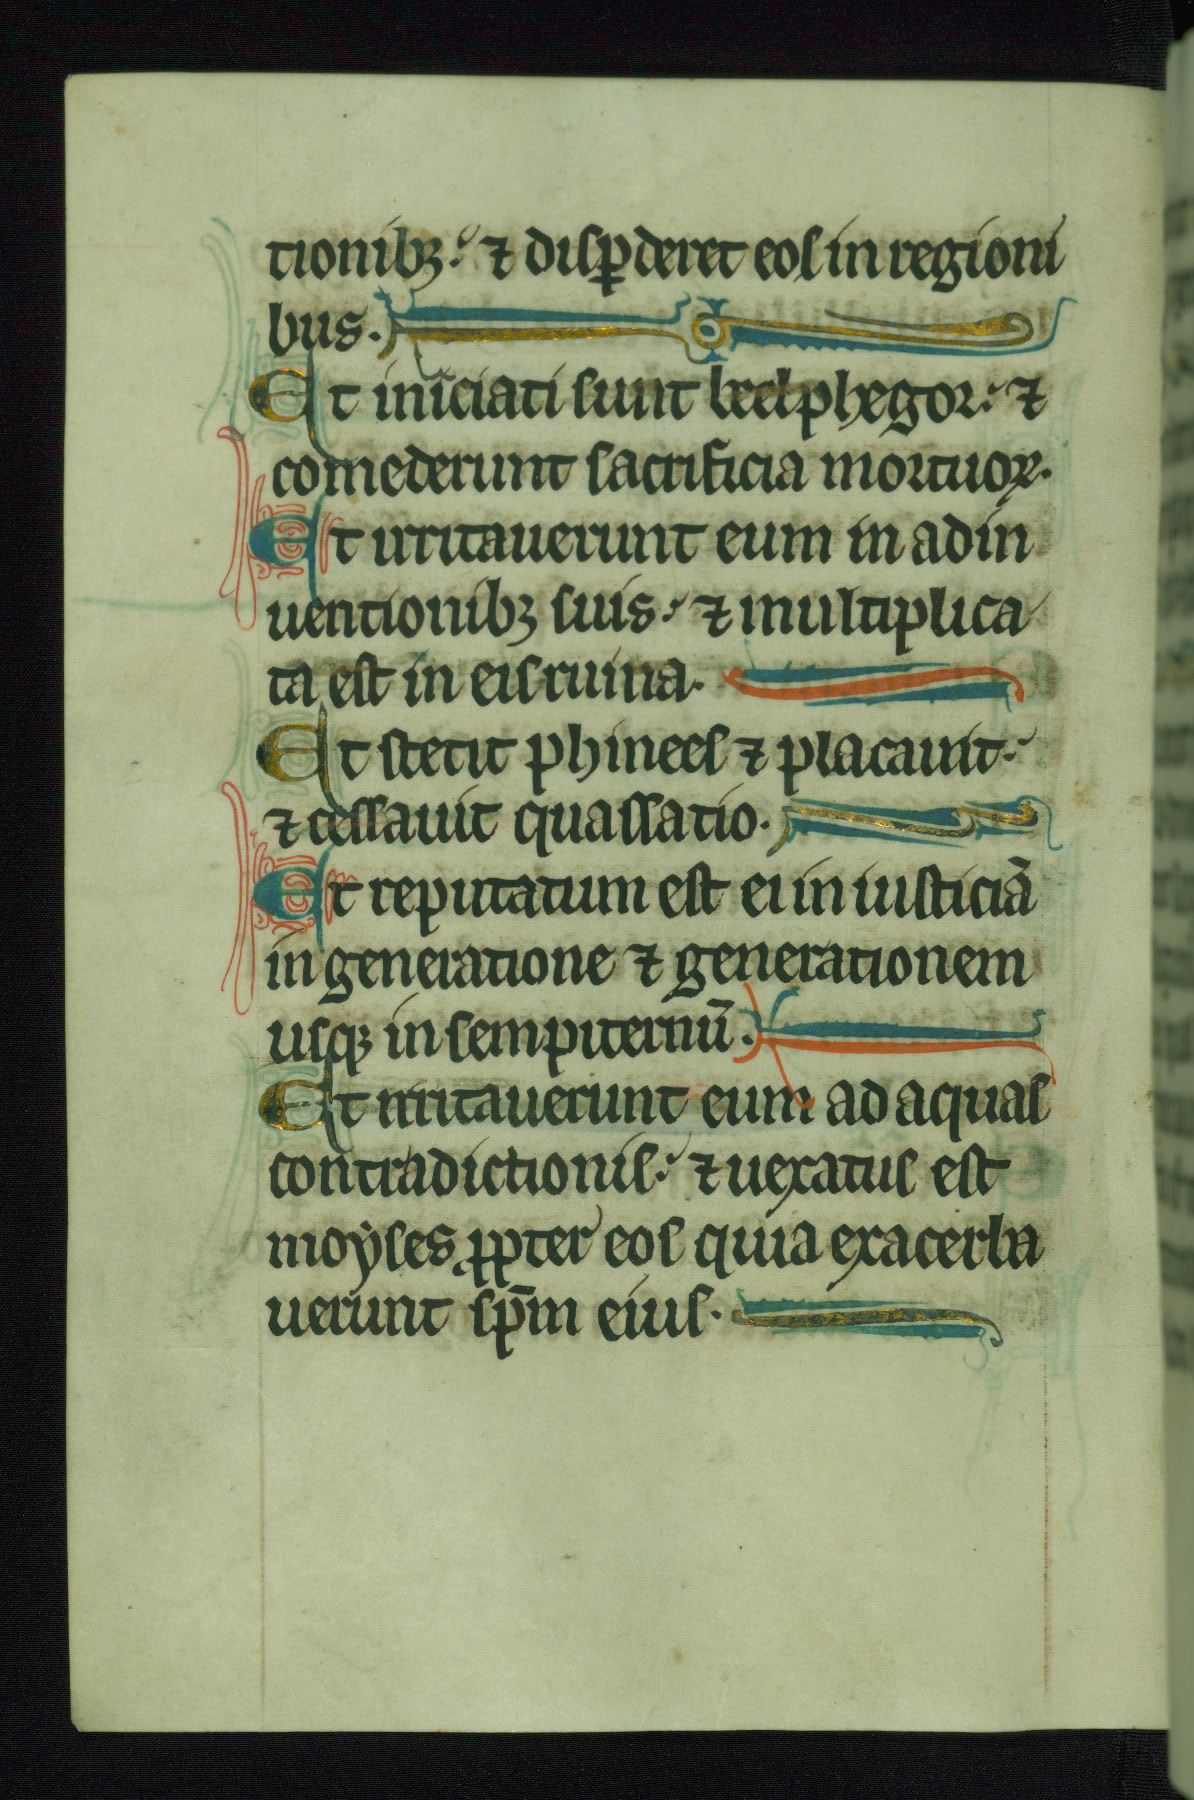 tionibꝫ: ⁊ diſꝑderet eoſ in regioni
bus.
Et iniciati ſunt beelphegor: ⁊
comederunt ſacrificia mortuoꝝ.
Et irritauerunt eum in adin
uentionibꝫ ſuis: ⁊ multiplica
ta eſt in eiſ ruina.
Et ſtetit phineeſ ⁊ placauit:
⁊ ceſſauit quaſſatio.
Et reputatum eſt ei in iuſticiā
in generatione ⁊ generationem
uſqꝫ in ſempiternū.
Et irritauerunt eum ad aquaſ
contradictioniſ: ⁊ uexatuſ eſt
moẏſes ꝓpter eoſ quia exacerba
uerunt ſp̄m eiuſ.